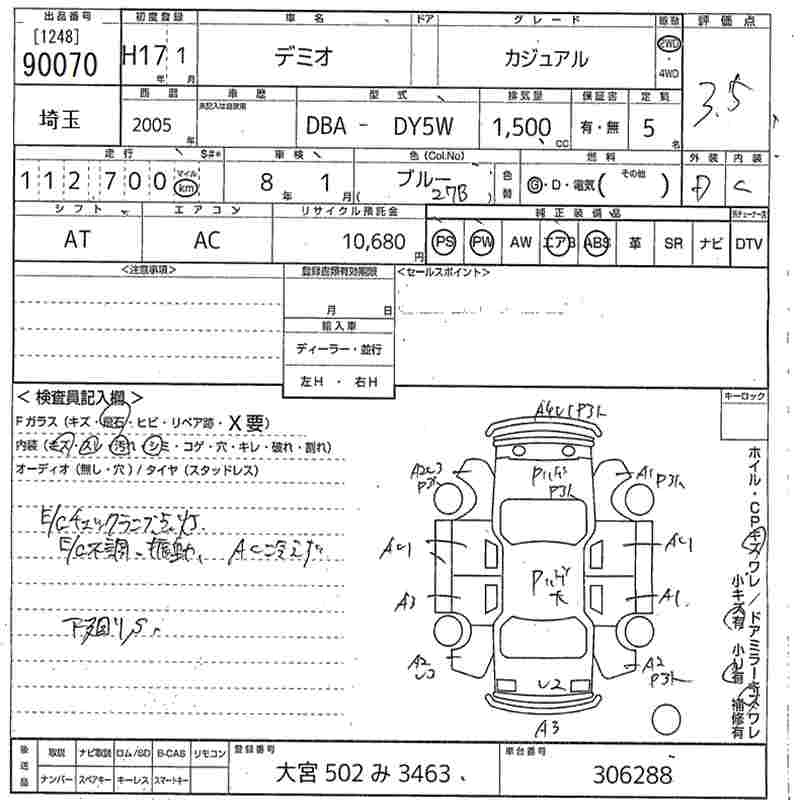 出品番号 初度登録 車名 ドア グレード 駆動 評価点
[1248]
90070 H17年 1月 デミオ カジュアル 2WD・4WD 3.5
埼玉 西暦 車歴 型式 排気量 保証書 定員
未記入は自家用
2005年 DBA - DY5W 1,500cc 有・無 5名
走行 S#* 車検 色(Col.No) 燃料 外装 内装
112700 マイル km 8年 1月 ブルー 27B 色替 G・D・電気( その他 ) D C
シフト エアコン リサイクル預託金 純正装備品
AT AC 10,680円 PS PW AW エアB ABS 革 SR ナビ DTV
<注意事項> 登録書類有効期限 <セールスポイント>
月 日
輸入車
ディーラー・並行
左H ・ 右H
<検査員記入欄> キーロック
Fガラス(キズ・飛石・ヒビ・リペア跡・X要)
内装(キズ・スレ・汚れ・シミ・コゲ・穴・キレ・破れ・割れ)
オーディオ(無し・穴)/タイヤ(スタッドレス)
E/Cチェックランプ点灯.
E/C不調、振動、 AC冷えず
下廻りS.
P31
A1 P31
P31
AC1 AC1
A3 A1
A2 A2
P31
U2
A3
ホイル・CPキズワレ/ドアミラーキズワレ
小キズ有 小U有 補修有
後送品 取説 ナビ取説 ロム/SD B-CAS リモコン 登録番号 車台番号
ナンバー スペアキー キーレス スマートキー 大宮 502 み 3463 306288